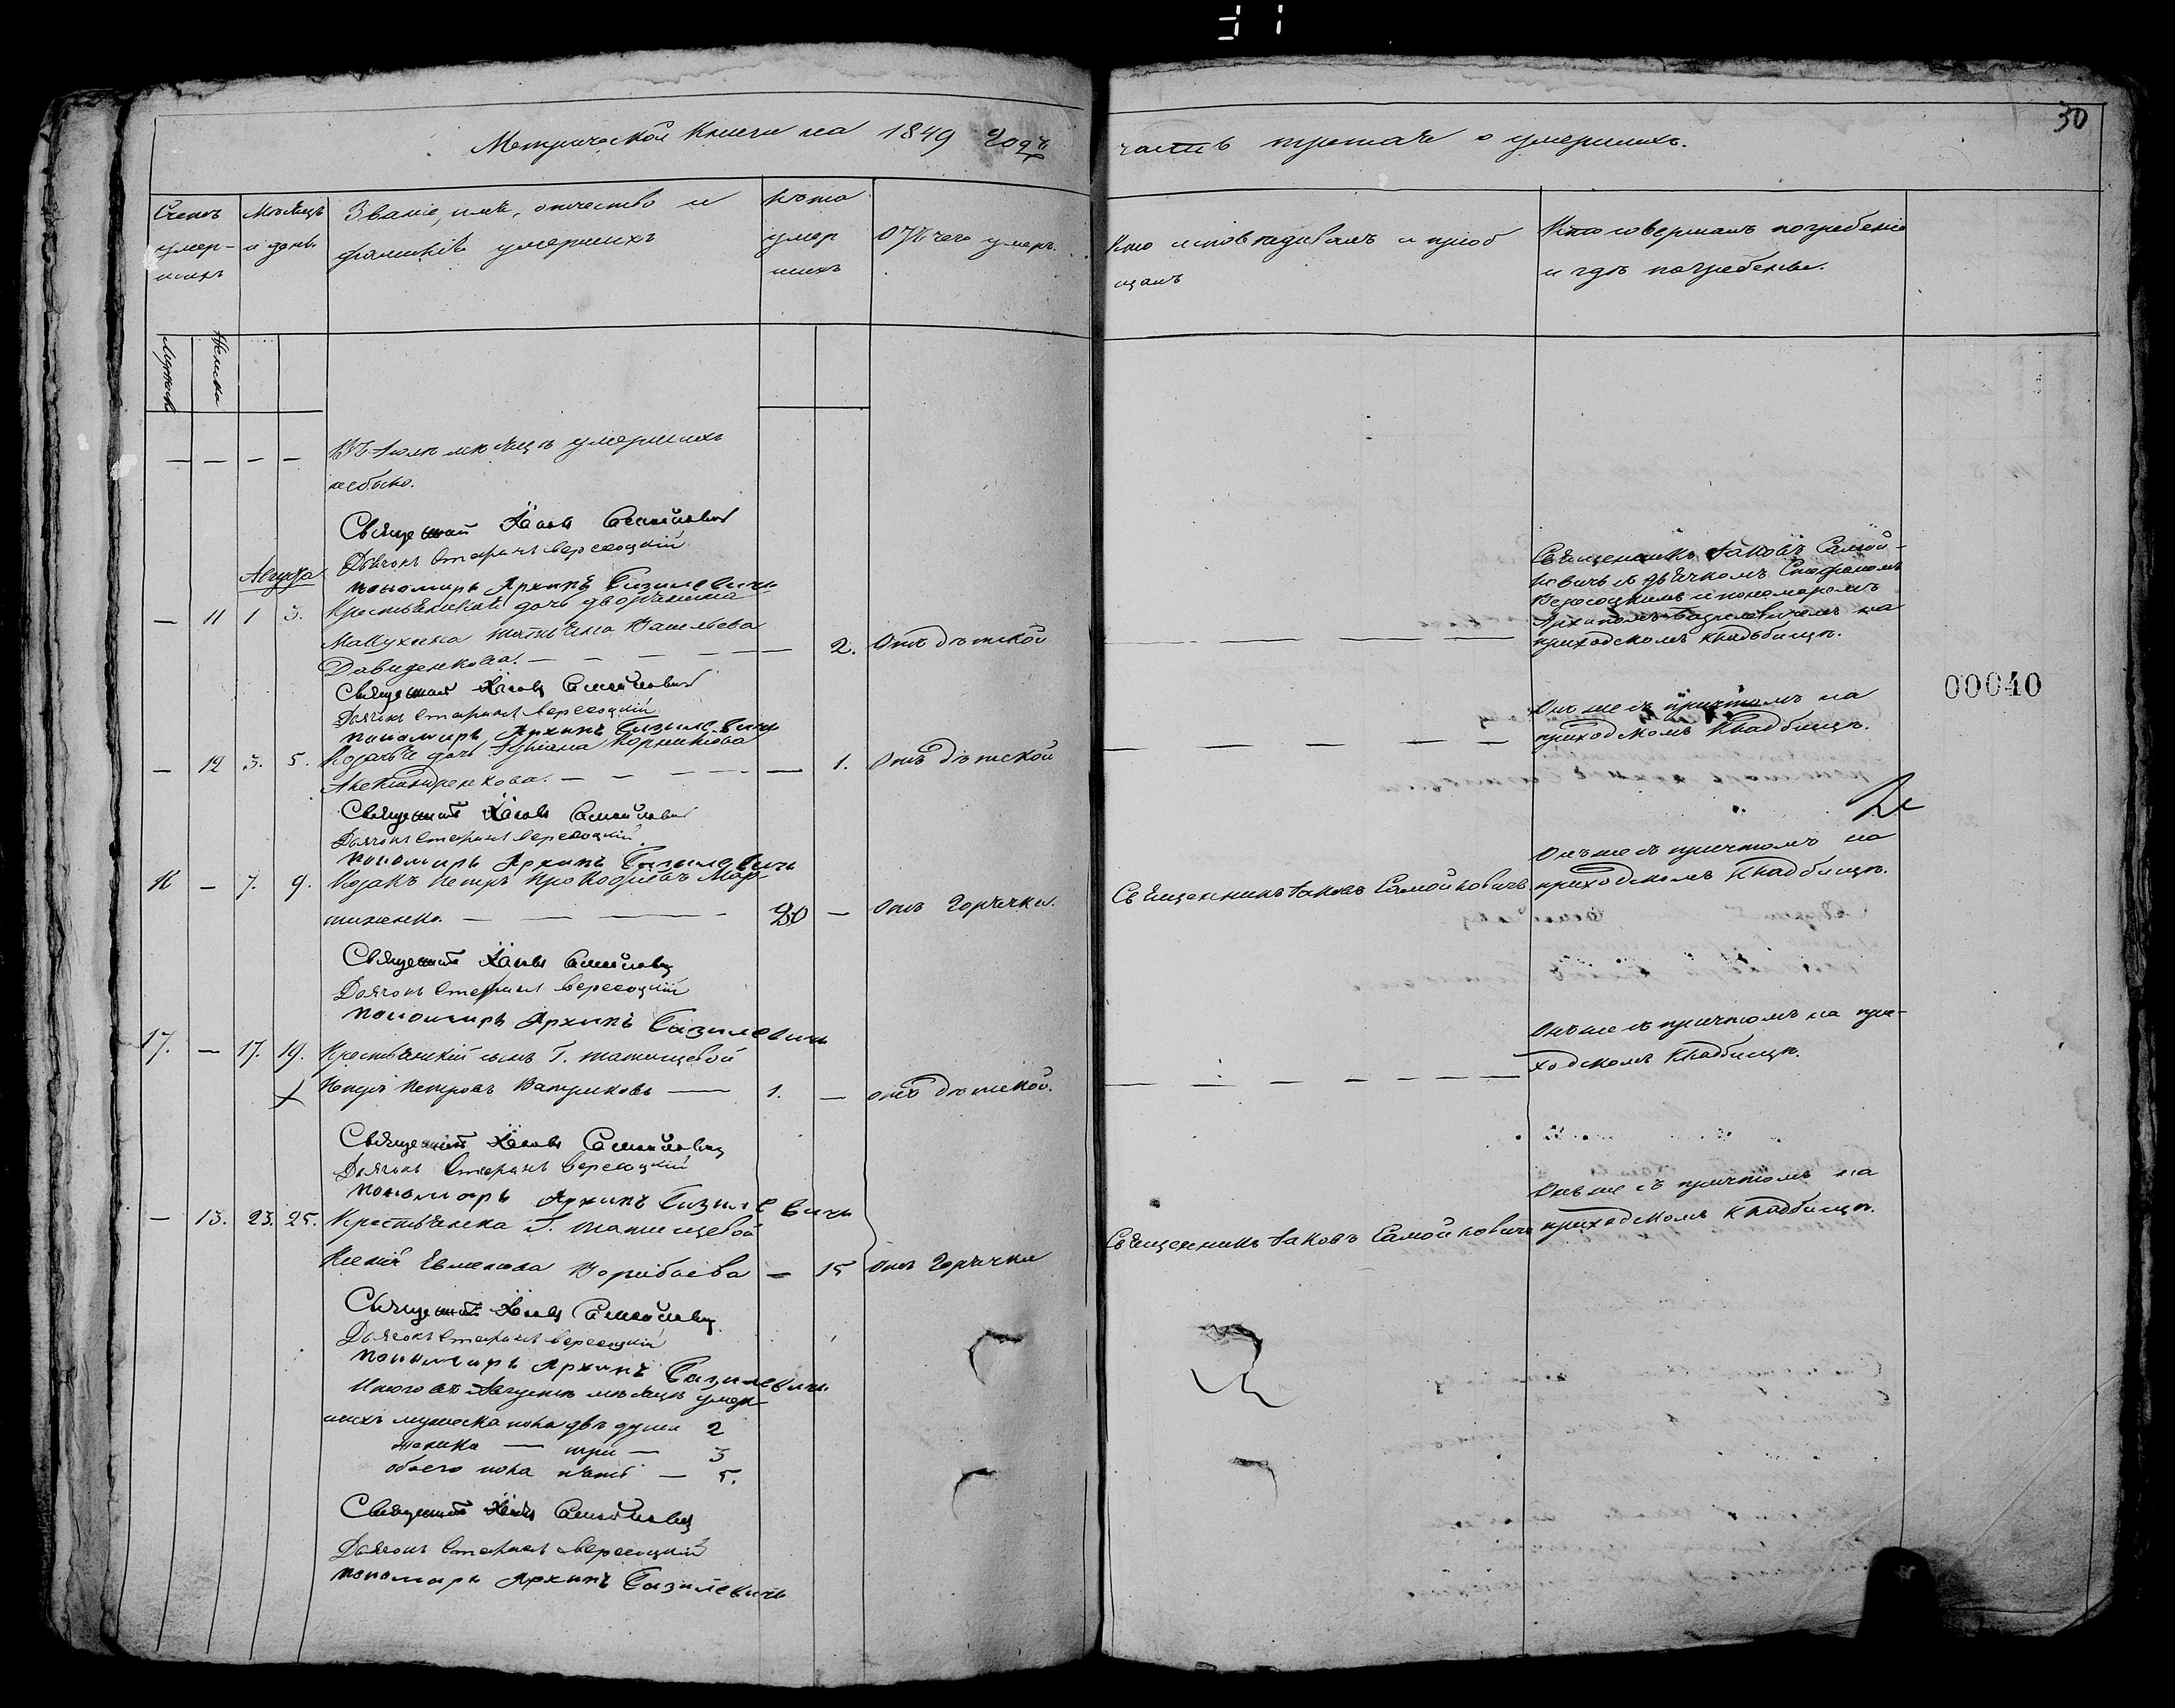 30
Метрической книги на 1849 годъ
часть третья о умершихъ.
Счетъ умер-шихъ
Мѣсяцъ и день
Званіе, имя, отчество и
фамилія умершихъ
Лѣта умер шихъ
Отъ чего умеръ.
Кто исповѣдывалъ и приоб
щалъ
Кто совершалъ погребеніе
и гдѣ погребены.
Мужеска
Женска
— — — — Въ Іюлѣ мѣсяцѣ умершихъ
небыло.
Священникъ Іаковъ Самойловичъ
Дьячокъ Стефанъ Вересоцкій
пономарь Архипъ Базилевичъ
Августа
— 11 1 3. Крестьянская дочь дворянина
Татьяна Васильева
Давиденкова. — — — — — 2. Отъ дѣтской
Священникъ Іаковъ Самой-
ловичъ съ дьячкомъ Стефаномъ
Вересоцкимъ и пономаремъ
Архипомъ Базилевичемъ на
приходскомъ кладбищѣ.
Священникъ Іаковъ Самойловичъ
Дьячокъ Стефанъ Вересоцкій
пономарь Архипъ Базилевичъ
00040
— 12 3. 5. Козачья дочь
— — — — 1. Отъ дѣтской
Онъ же съ причтомъ на
приходскомъ кладбищѣ.
Священникъ Іаковъ Самойловичъ
Дьячокъ Стефанъ Вересоцкій
пономарь Архипъ Базилевичъ
— 7. 9. Козакъ Петръ
— — — — Отъ горячки.
Священникъ Іаковъ Самойловичъ
Онъ же съ причтомъ на
приходскомъ кладбищѣ.
Священникъ Іаковъ Самойловичъ
Дьячокъ Стефанъ Вересоцкій
пономарь Архипъ Базилевичъ
17. — 17. 19. Крестьянскій сынъ Г. Татищевой
Петровъ — 1. — отъ дѣтской.
Онъ же съ причтомъ на при-
ходскомъ кладбищѣ.
Священникъ Іаковъ Самойловичъ
Дьячокъ Стефанъ Вересоцкій
пономарь Архипъ Базилевичъ
— 13. 23. 25. Крестьянка Г. Татищевой
Ксенія — 15 Отъ горячки
Священникъ Іаковъ Самойловичъ
Онъ же съ причтомъ на
приходскомъ кладбищѣ.
Священникъ Іаковъ Самойловичъ
Дьячокъ Стефанъ Вересоцкій
пономарь Архипъ Базилевичъ
Итого въ Августѣ мѣсяцѣ умер-
шихъ мужеска пола двѣ души 2
женска — три — 3
обоего пола пять — 5.
Священникъ Іаковъ Самойловичъ
Дьячокъ Стефанъ Вересоцкій
пономарь Архипъ Базилевичъ